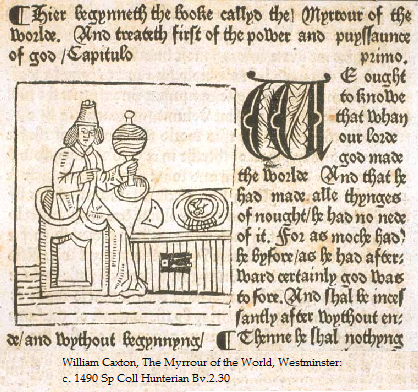 ¶Hier begynneth the booke callyd the Myrrour of the
worlde. And treateth first of the power and puyssaunce
of god / Capitulo primo.
WE ought
to knowe
that whan
our lorde
god made
the worlde And that he
had made alle thynges
of nought/he had no nede
of it. For as moche had
he byfore/as he had after-
ward certainly god was
tofore. And shal be inces
santly after wythout en-
de/and wythout begynnyng/ ¶Thenne he shal nothyng
William Caxton, The Myrrour of the World, Westminster:
c. 1490 Sp Coll Hunterian Bv.2.30